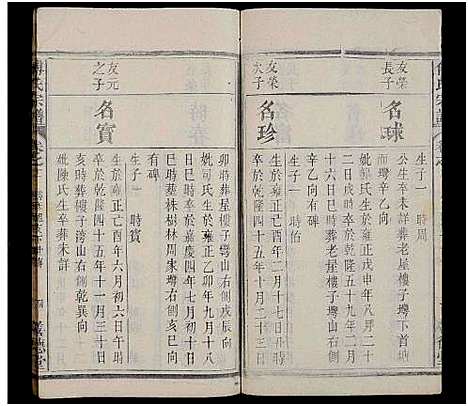 友榮長子
名球
生子一 時周
公生卒未詳葬老屋樓子塆山下首納
山癸辛乙向
妣郭氏生於雍正戊申年八月二十
二日戌時卒於乾隆五十九年二月
十六日巳時葬老屋樓子塆山右側
辛乙向有碑
友榮次子
名珍
生子一 時佑
生於雍正己酉年二月十七日巳時
卒於乾隆四十五年十月二十三日
卯時葬屋樓子塆山右側戌辰向
妣司氏生於雍正乙卯年九月十八
日戌時卒於嘉慶四年七月初六日
巳時葬株樹林周家塆右側亥巳向
有碑
友元之子
名實
生子一 時賓
生於雍正己酉年六月初六日午時
卒於乾隆四十五年十一月三十日
亥時葬樓子塆山右側乾巽向
妣陳氏生卒葬未詳
傅氏宗譜
義德堂